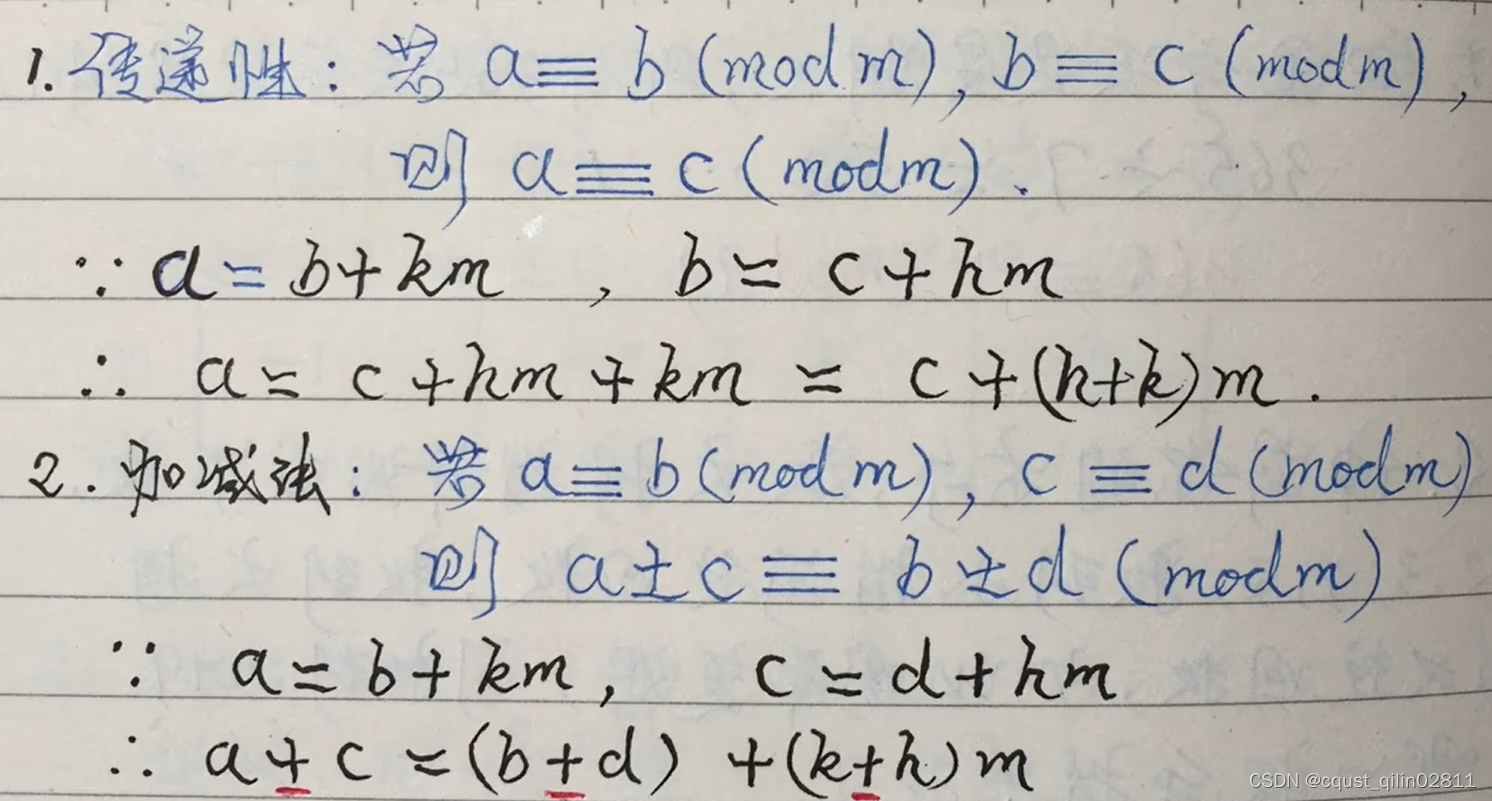 1. 传递性: 若 a ≡ b (mod m), b ≡ c (mod m),
则 a ≡ c (mod m).
∵ a = b + km , b = c + hm
∴ a = c + hm + km = c + (h+k)m .
2. 加减法: 若 a ≡ b (mod m), c ≡ d (mod m)
则 a ± c ≡ b ± d (mod m)
∵ a = b + km, c = d + hm
∴ a + c = (b + d) + (k + h)m
CSDN @cqust_qilin02811